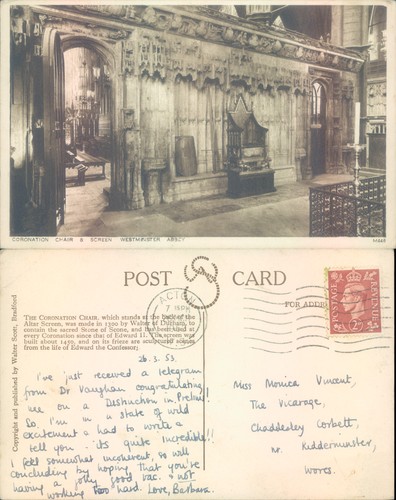 CORONATION CHAIR & SCREEN WESTMINSTER ABBEY
POST CARD
Copyright and published by Walter Scott, Bradford
THE CORONATION CHAIR, which stands at the back of the
Altar Screen, was made in 1300 by Walter of Durham, to
contain the sacred Stone of Scone, and has been used at
every Coronation since that of Edward II. The screen was
built about 1450, and on its frieze are sculptured scenes
from the life of Edward the Confessor.
ACTON
POSTAGE
REVENUE
26.3.53.
I've just received a telegram
from Dr Vaughan congratulating
me on a Distinction in Prelim!!
So, I'm in a state of wild
excitement & had to write &
tell you - it's quite incredible!!
I feel somewhat incoherent, so will
concluding by hoping that you're
having a jolly good vac. & not
working too hard. Love, Barbara.
Miss Monica Vincent,
The Vicarage,
Chaddesley Corbett,
nr. Kidderminster,
Worcs.